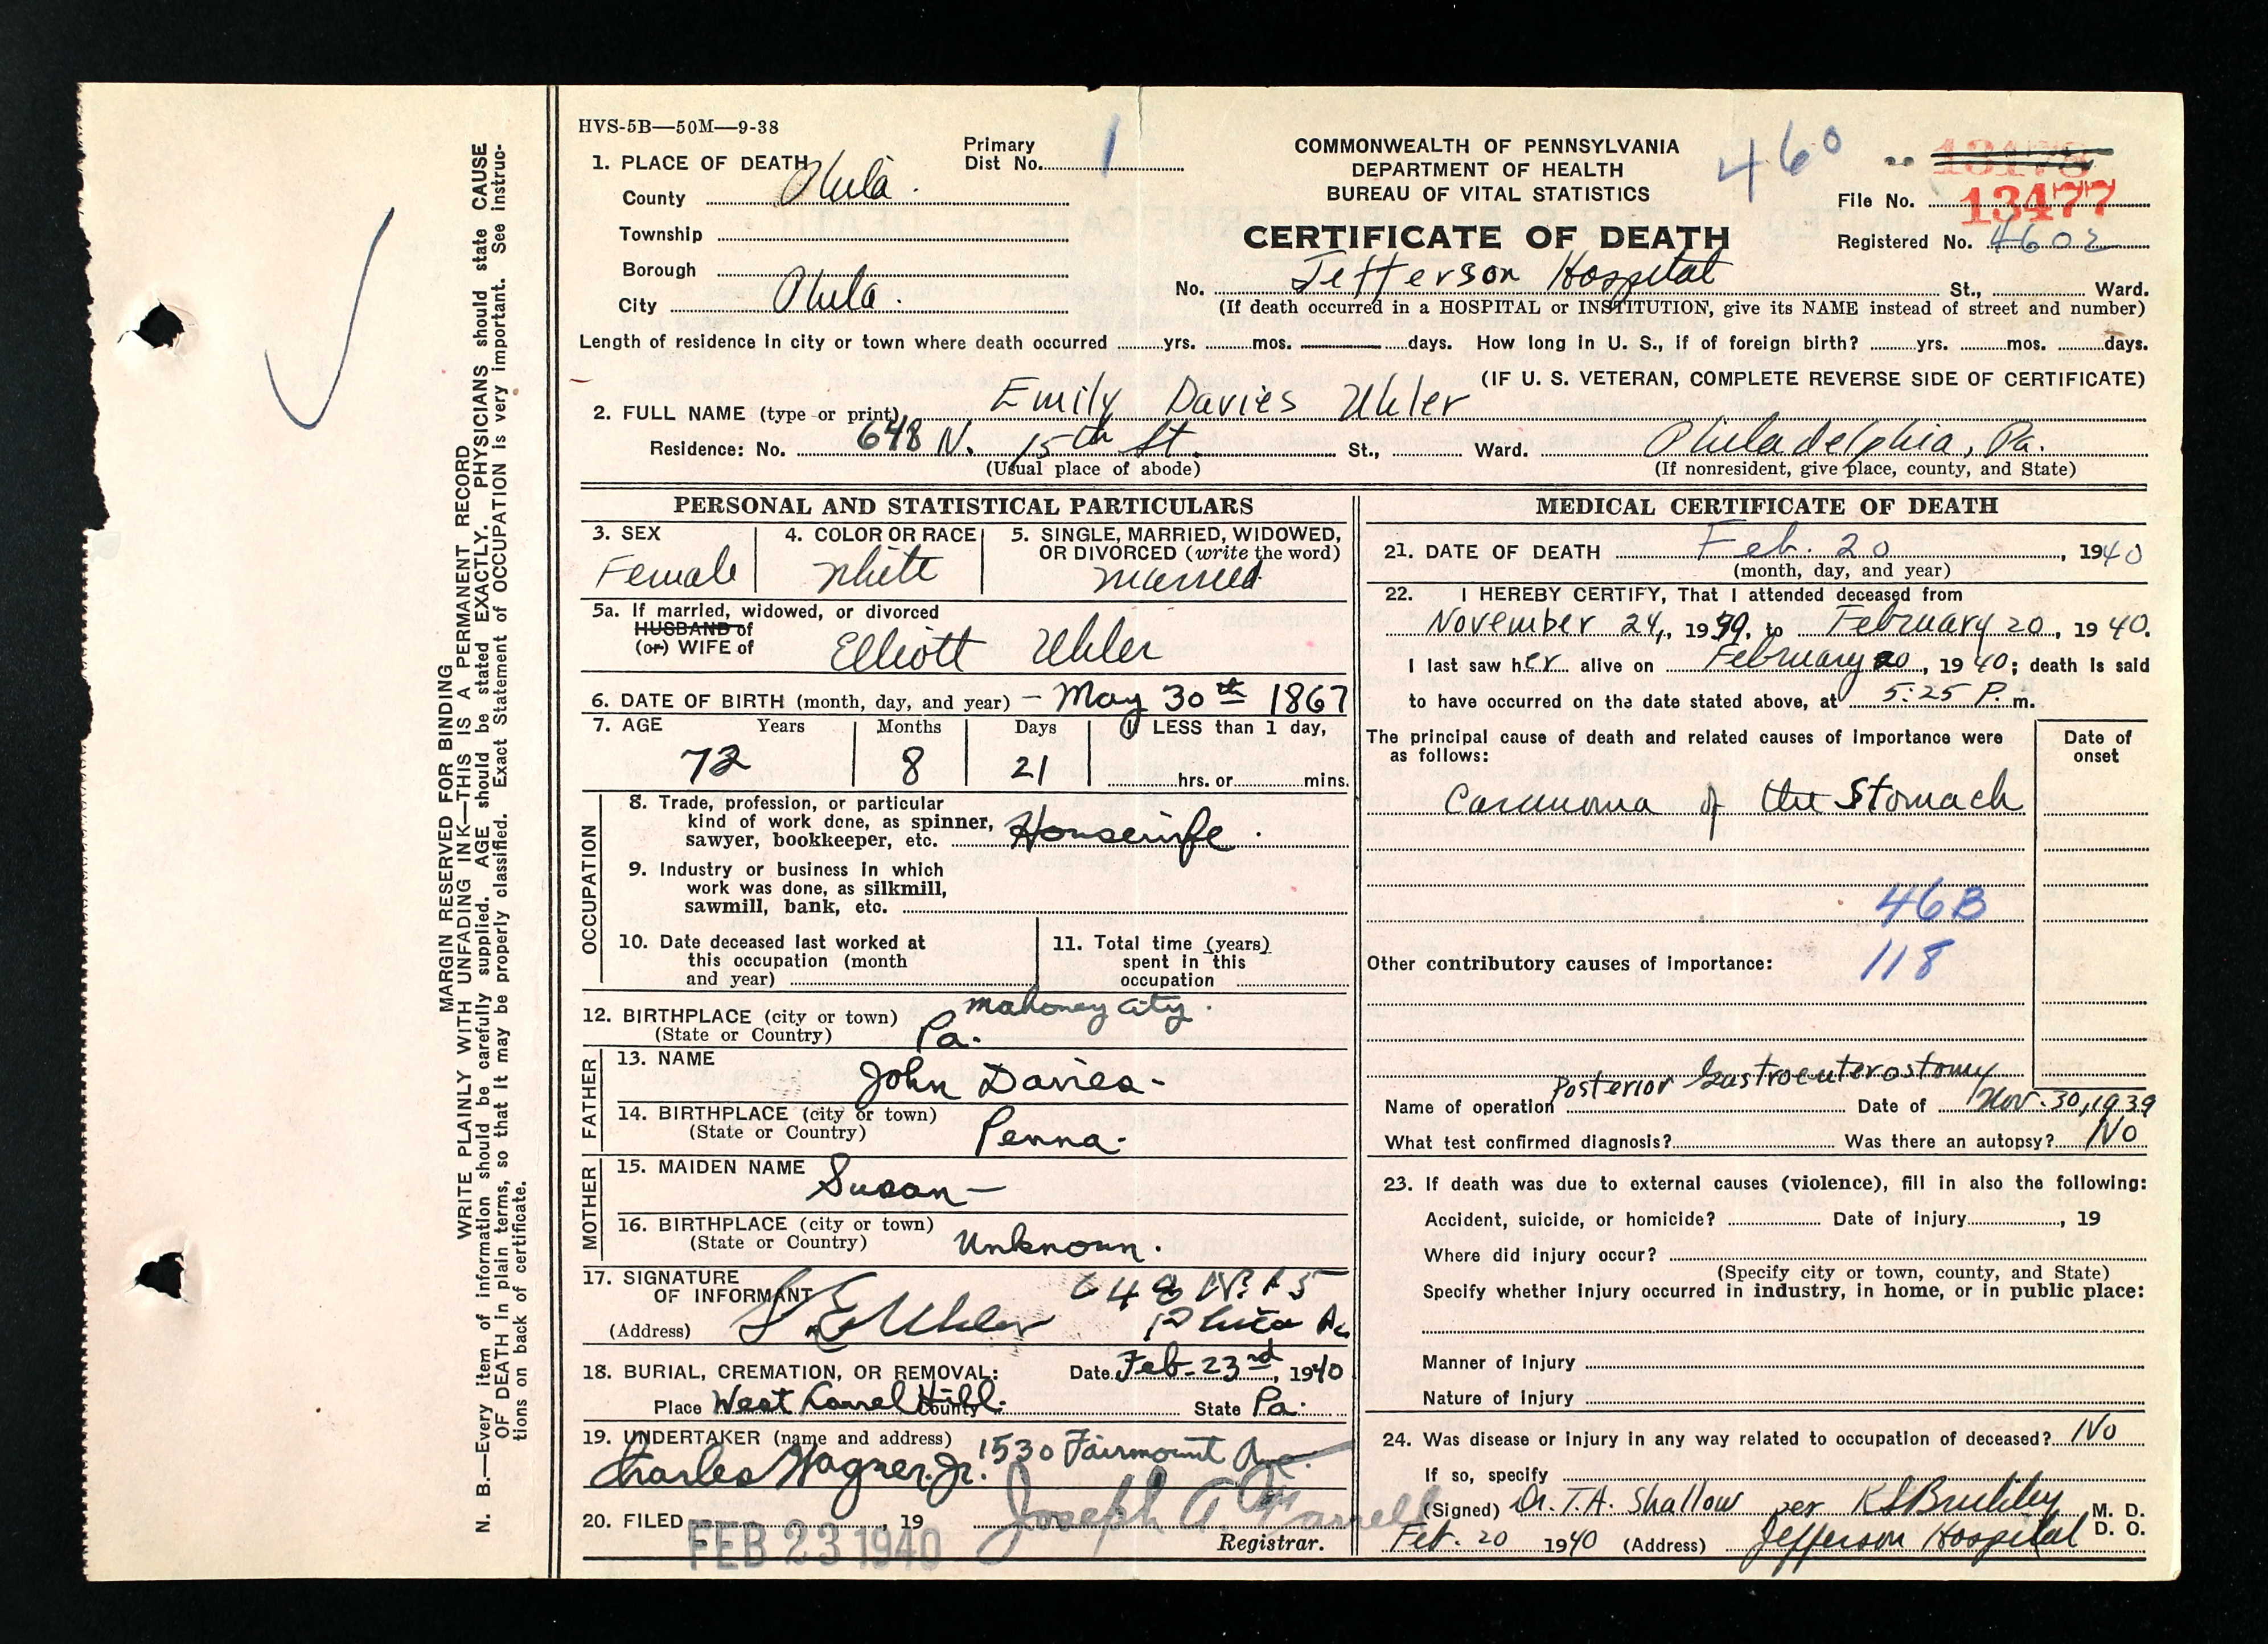 HVS-5B—50M—9-38
1. PLACE OF DEATH
County Phila.
Township
Borough
City Phila.
Primary
Dist No. 1
COMMONWEALTH OF PENNSYLVANIA
DEPARTMENT OF HEALTH
BUREAU OF VITAL STATISTICS
CERTIFICATE OF DEATH
460
13478
File No. 13477
Registered No. 4602
No. Jefferson Hospital St., Ward.
(If death occurred in a HOSPITAL or INSTITUTION, give its NAME instead of street and number)
Length of residence in city or town where death occurred yrs. mos. days. How long in U. S., if of foreign birth? yrs. mos. days.
(IF U. S. VETERAN, COMPLETE REVERSE SIDE OF CERTIFICATE)
2. FULL NAME (type or print) Emily Davies Uhler
Residence: No. 648 N. 15th St. St., Ward. Philadelphia, Pa.
(Usual place of abode) (If nonresident, give place, county, and State)
PERSONAL AND STATISTICAL PARTICULARS
3. SEX
Female
4. COLOR OR RACE
White
5. SINGLE, MARRIED, WIDOWED,
OR DIVORCED (write the word)
Married
5a. If married, widowed, or divorced
HUSBAND of
(or) WIFE of Elliott Uhler
6. DATE OF BIRTH (month, day, and year) – May 30th 1867
7. AGE Years Months Days If LESS than 1 day,
72 8 21 hrs. or mins.
OCCUPATION
8. Trade, profession, or particular
kind of work done, as spinner,
sawyer, bookkeeper, etc. Housewife.
9. Industry or business in which
work was done, as silkmill,
sawmill, bank, etc.
10. Date deceased last worked at
this occupation (month
and year)
11. Total time (years)
spent in this
occupation
12. BIRTHPLACE (city or town) Mahoney City.
(State or Country) Pa.
FATHER
13. NAME
John Davies-
14. BIRTHPLACE (city or town)
(State or Country) Penna-
MOTHER
15. MAIDEN NAME Susan—
16. BIRTHPLACE (city or town)
(State or Country) Unknown.
17. SIGNATURE
OF INFORMANT 648 N. 15
(Address) S. E Uhler Phila Pa
18. BURIAL, CREMATION, OR REMOVAL: Date Feb-23rd, 1940
Place West Laurel Hill. County State Pa.
19. UNDERTAKER (name and address) 1530 Fairmount Ave.
Charles Wagner. Jr.
20. FILED FEB 23 1940, 19 Joseph A. Farrell
Registrar.
MEDICAL CERTIFICATE OF DEATH
21. DATE OF DEATH Feb. 20, 1940
(month, day, and year)
22. I HEREBY CERTIFY, That I attended deceased from
November 24, 1939, to February 20, 1940.
I last saw her alive on February 20, 1940; death is said
to have occurred on the date stated above, at 5:25 P. m.
The principal cause of death and related causes of importance were
as follows:
Date of
onset
Carcinoma of the Stomach
46B
118
Other contributory causes of importance:
Name of operation Posterior Gastroenterostomy Date of Nov. 30, 1939
What test confirmed diagnosis? Was there an autopsy? No
23. If death was due to external causes (violence), fill in also the following:
Accident, suicide, or homicide? Date of injury , 19
Where did injury occur?
(Specify city or town, county, and State)
Specify whether injury occurred in industry, in home, or in public place:
Manner of injury
Nature of injury
24. Was disease or injury in any way related to occupation of deceased? No
If so, specify
(Signed) Dr. T.A. Shallow per M. D.
D. O.
Feb. 20 1940 (Address) Jefferson Hospital
MARGIN RESERVED FOR BINDING
WRITE PLAINLY WITH UNFADING INK—THIS IS A PERMANENT RECORD
N. B.—Every item of information should be carefully supplied. AGE should be stated EXACTLY. PHYSICIANS should state CAUSE
OF DEATH in plain terms, so that it may be properly classified. Exact Statement of OCCUPATION is very important. See instruc-
tions on back of certificate.